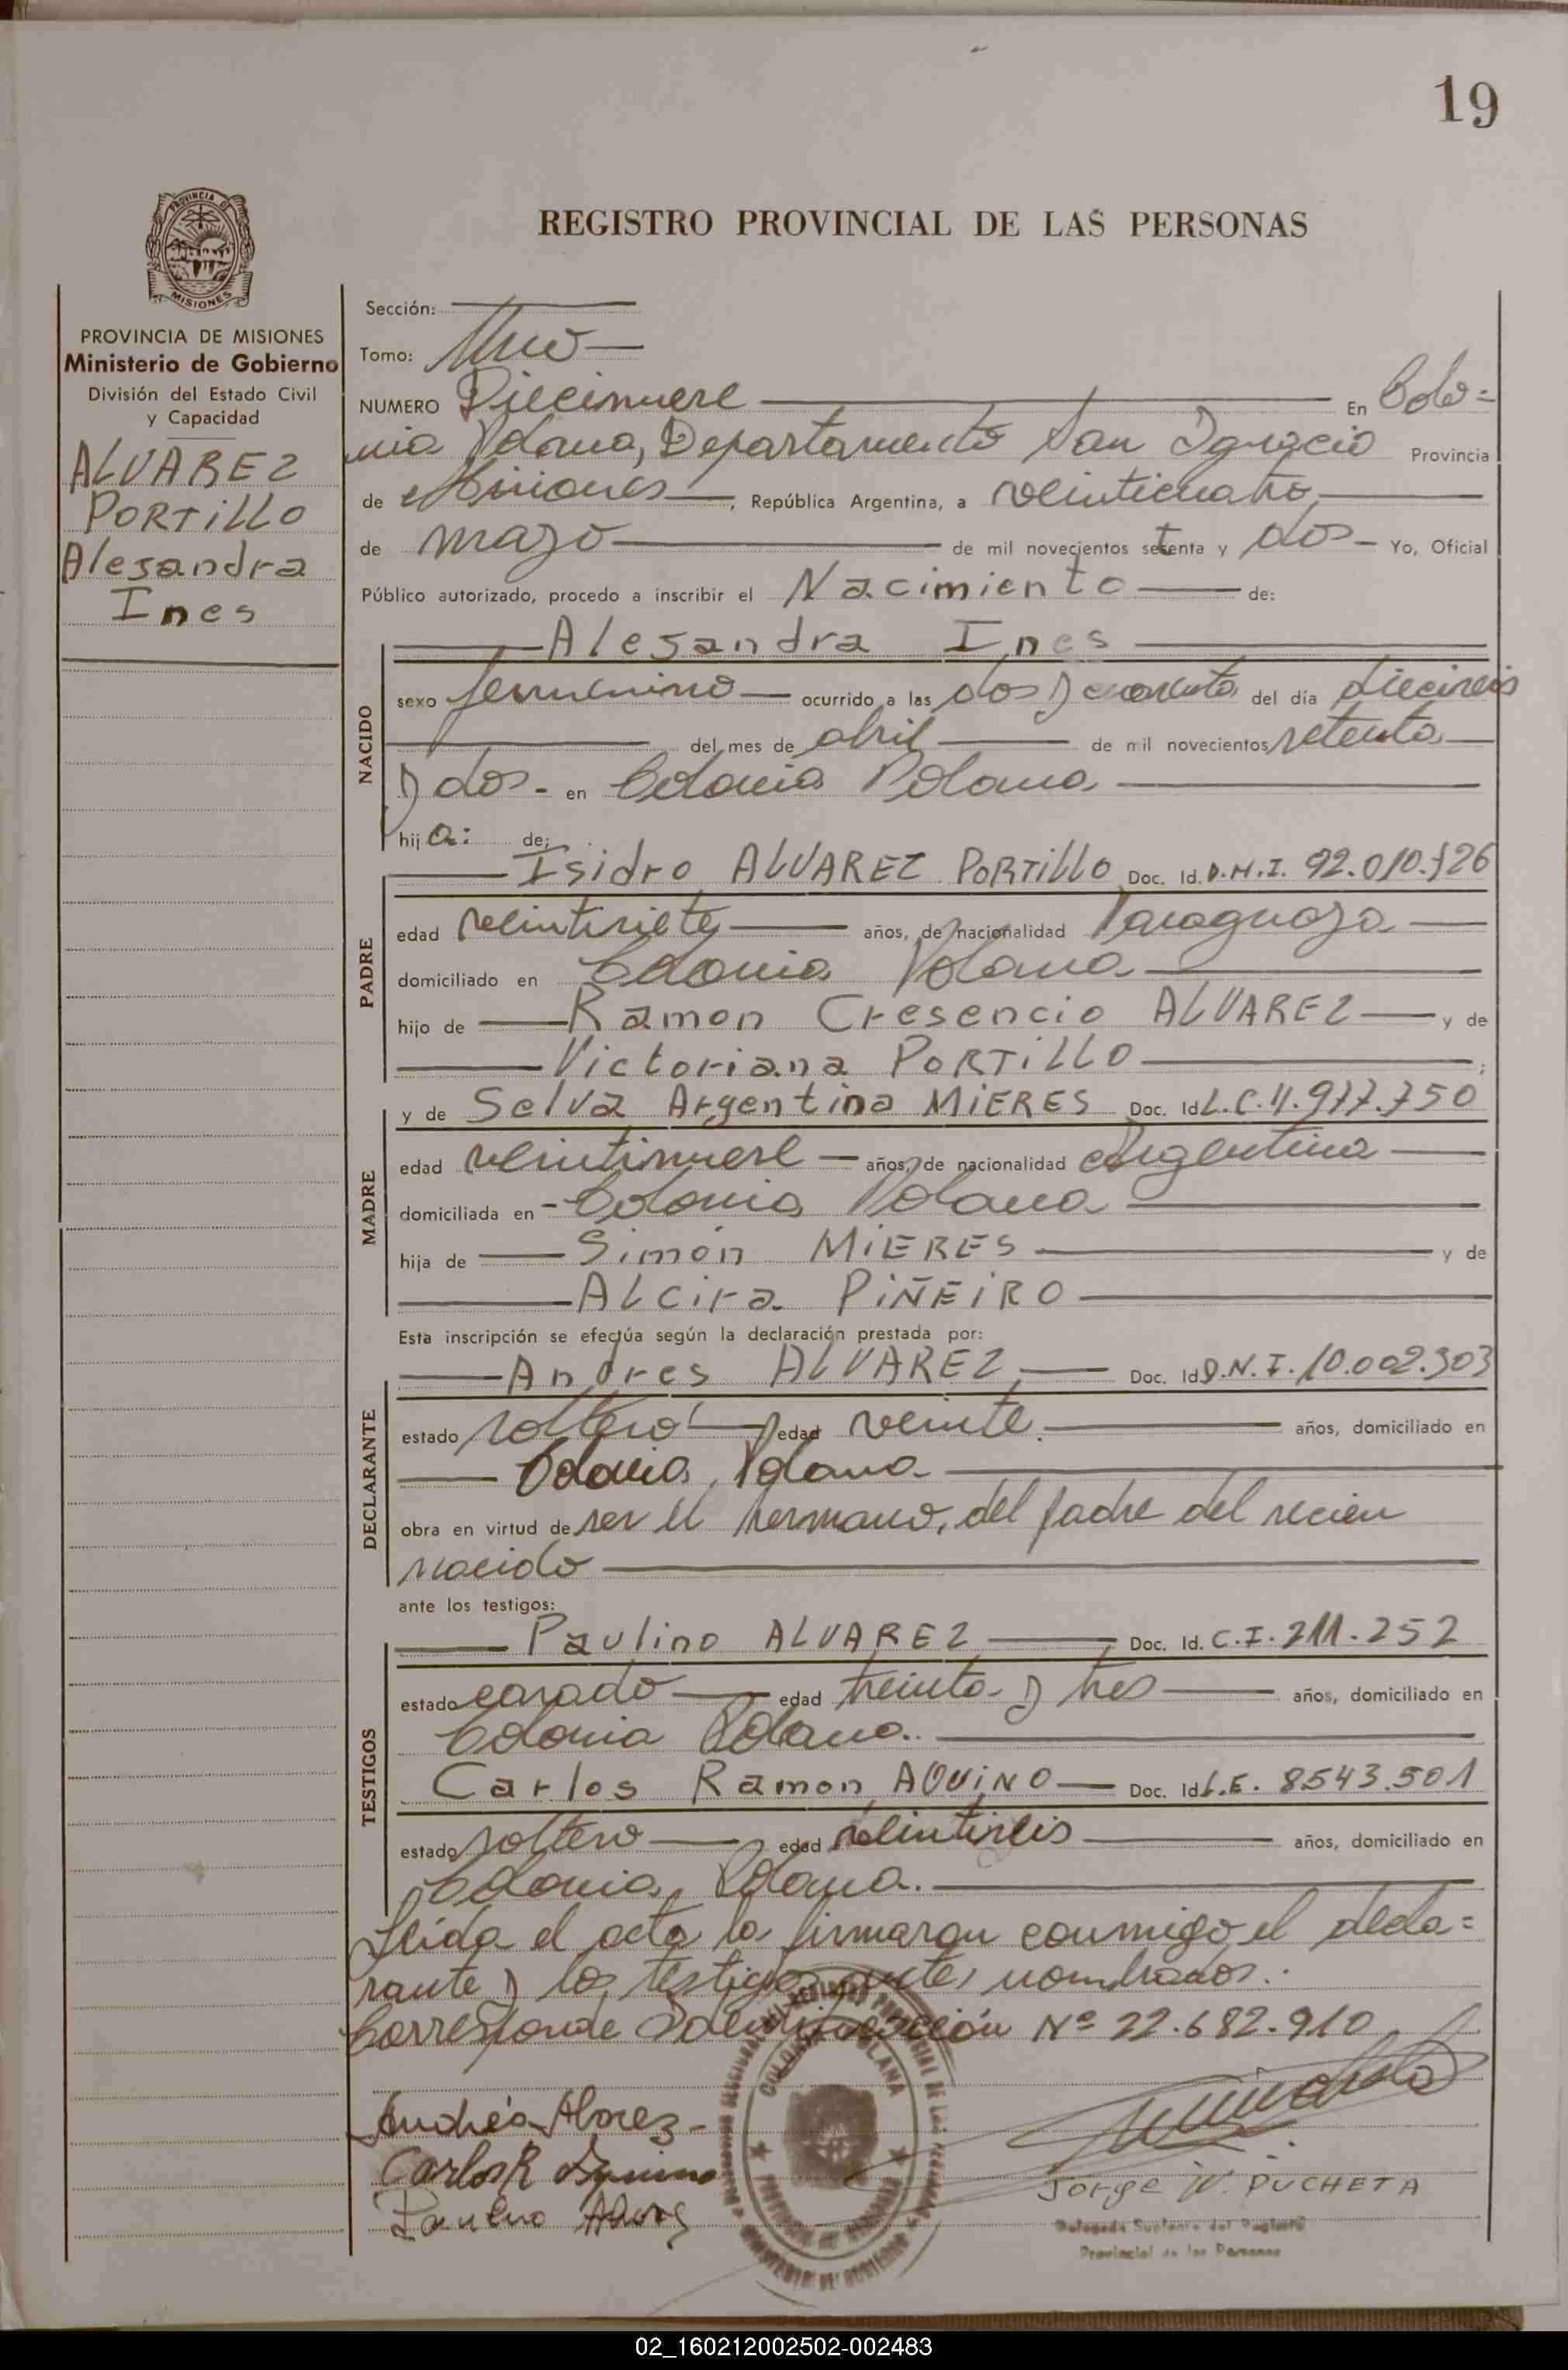 19
PROVINCIA DE
MISIONES
REGISTRO PROVINCIAL DE LAS PERSONAS
PROVINCIA DE MISIONES
Ministerio de Gobierno
División del Estado Civil
y Capacidad
ALVAREZ
PORTILLO
Alejandra
Ines
Sección:
Tomo: Uno
NUMERO Diecinueve En Colo=
nia Polana, Departamento San Ignacio Provincia
de Misiones, República Argentina, a veinticuatro
de mayo de mil novecientos setenta y dos - Yo, Oficial
Público autorizado, procedo a inscribir el Nacimiento de:
Alejandra Ines
NACIDO
sexo femenino ocurrido a las dos y cuarenta del día dieciseis
del mes de abril de mil novecientos setenta
y dos - en Colonia Polana
hija: de:
PADRE
Isidro ALVAREZ PORTILLO Doc. Id. D.N.I. 92.010.726
edad veintisiete años, de nacionalidad Paraguaya
domiciliado en Colonia Polana
hijo de Ramon Cresencio ALVAREZ y de
Victoriana PORTILLO ;
MADRE
y de Selva Argentina MIERES Doc. Id L.C. 11.977.750
edad veintinueve años, de nacionalidad Argentina
domiciliada en - Colonia Polana
hija de Simón MIERES y de
ALcira PIÑEIRO
Esta inscripción se efectúa según la declaración prestada por:
DECLARANTE
Andres ALVAREZ Doc. Id D.N.I. 10.002.303
estado soltero edad veinte años, domiciliado en
Colonia Polana
obra en virtud de ser el hermano, del padre del recien
nacido
ante los testigos:
TESTIGOS
Paulino ALVAREZ Doc. Id. C.I. 211.252
estado casado edad treinta y tres años, domiciliado en
Colonia Polana.
Carlos Ramon AQUINO Doc. Id L.E. 8543.501
estado soltero edad veintiseis años, domiciliado en
Colonia Polana.
Leida el acta la firmaran conmigo, el decla=
rante y los testigos antes nombrados.
Corresponde Identificación Nº 22.682.910
COLONIA POLANA
Andrés Alvarez
Carlos R Aquino
Paulino Alvarez
Jorge N. PUCHETA
Delegado Suplente del Registro
Provincial de las Personas
02_160212002502-002483